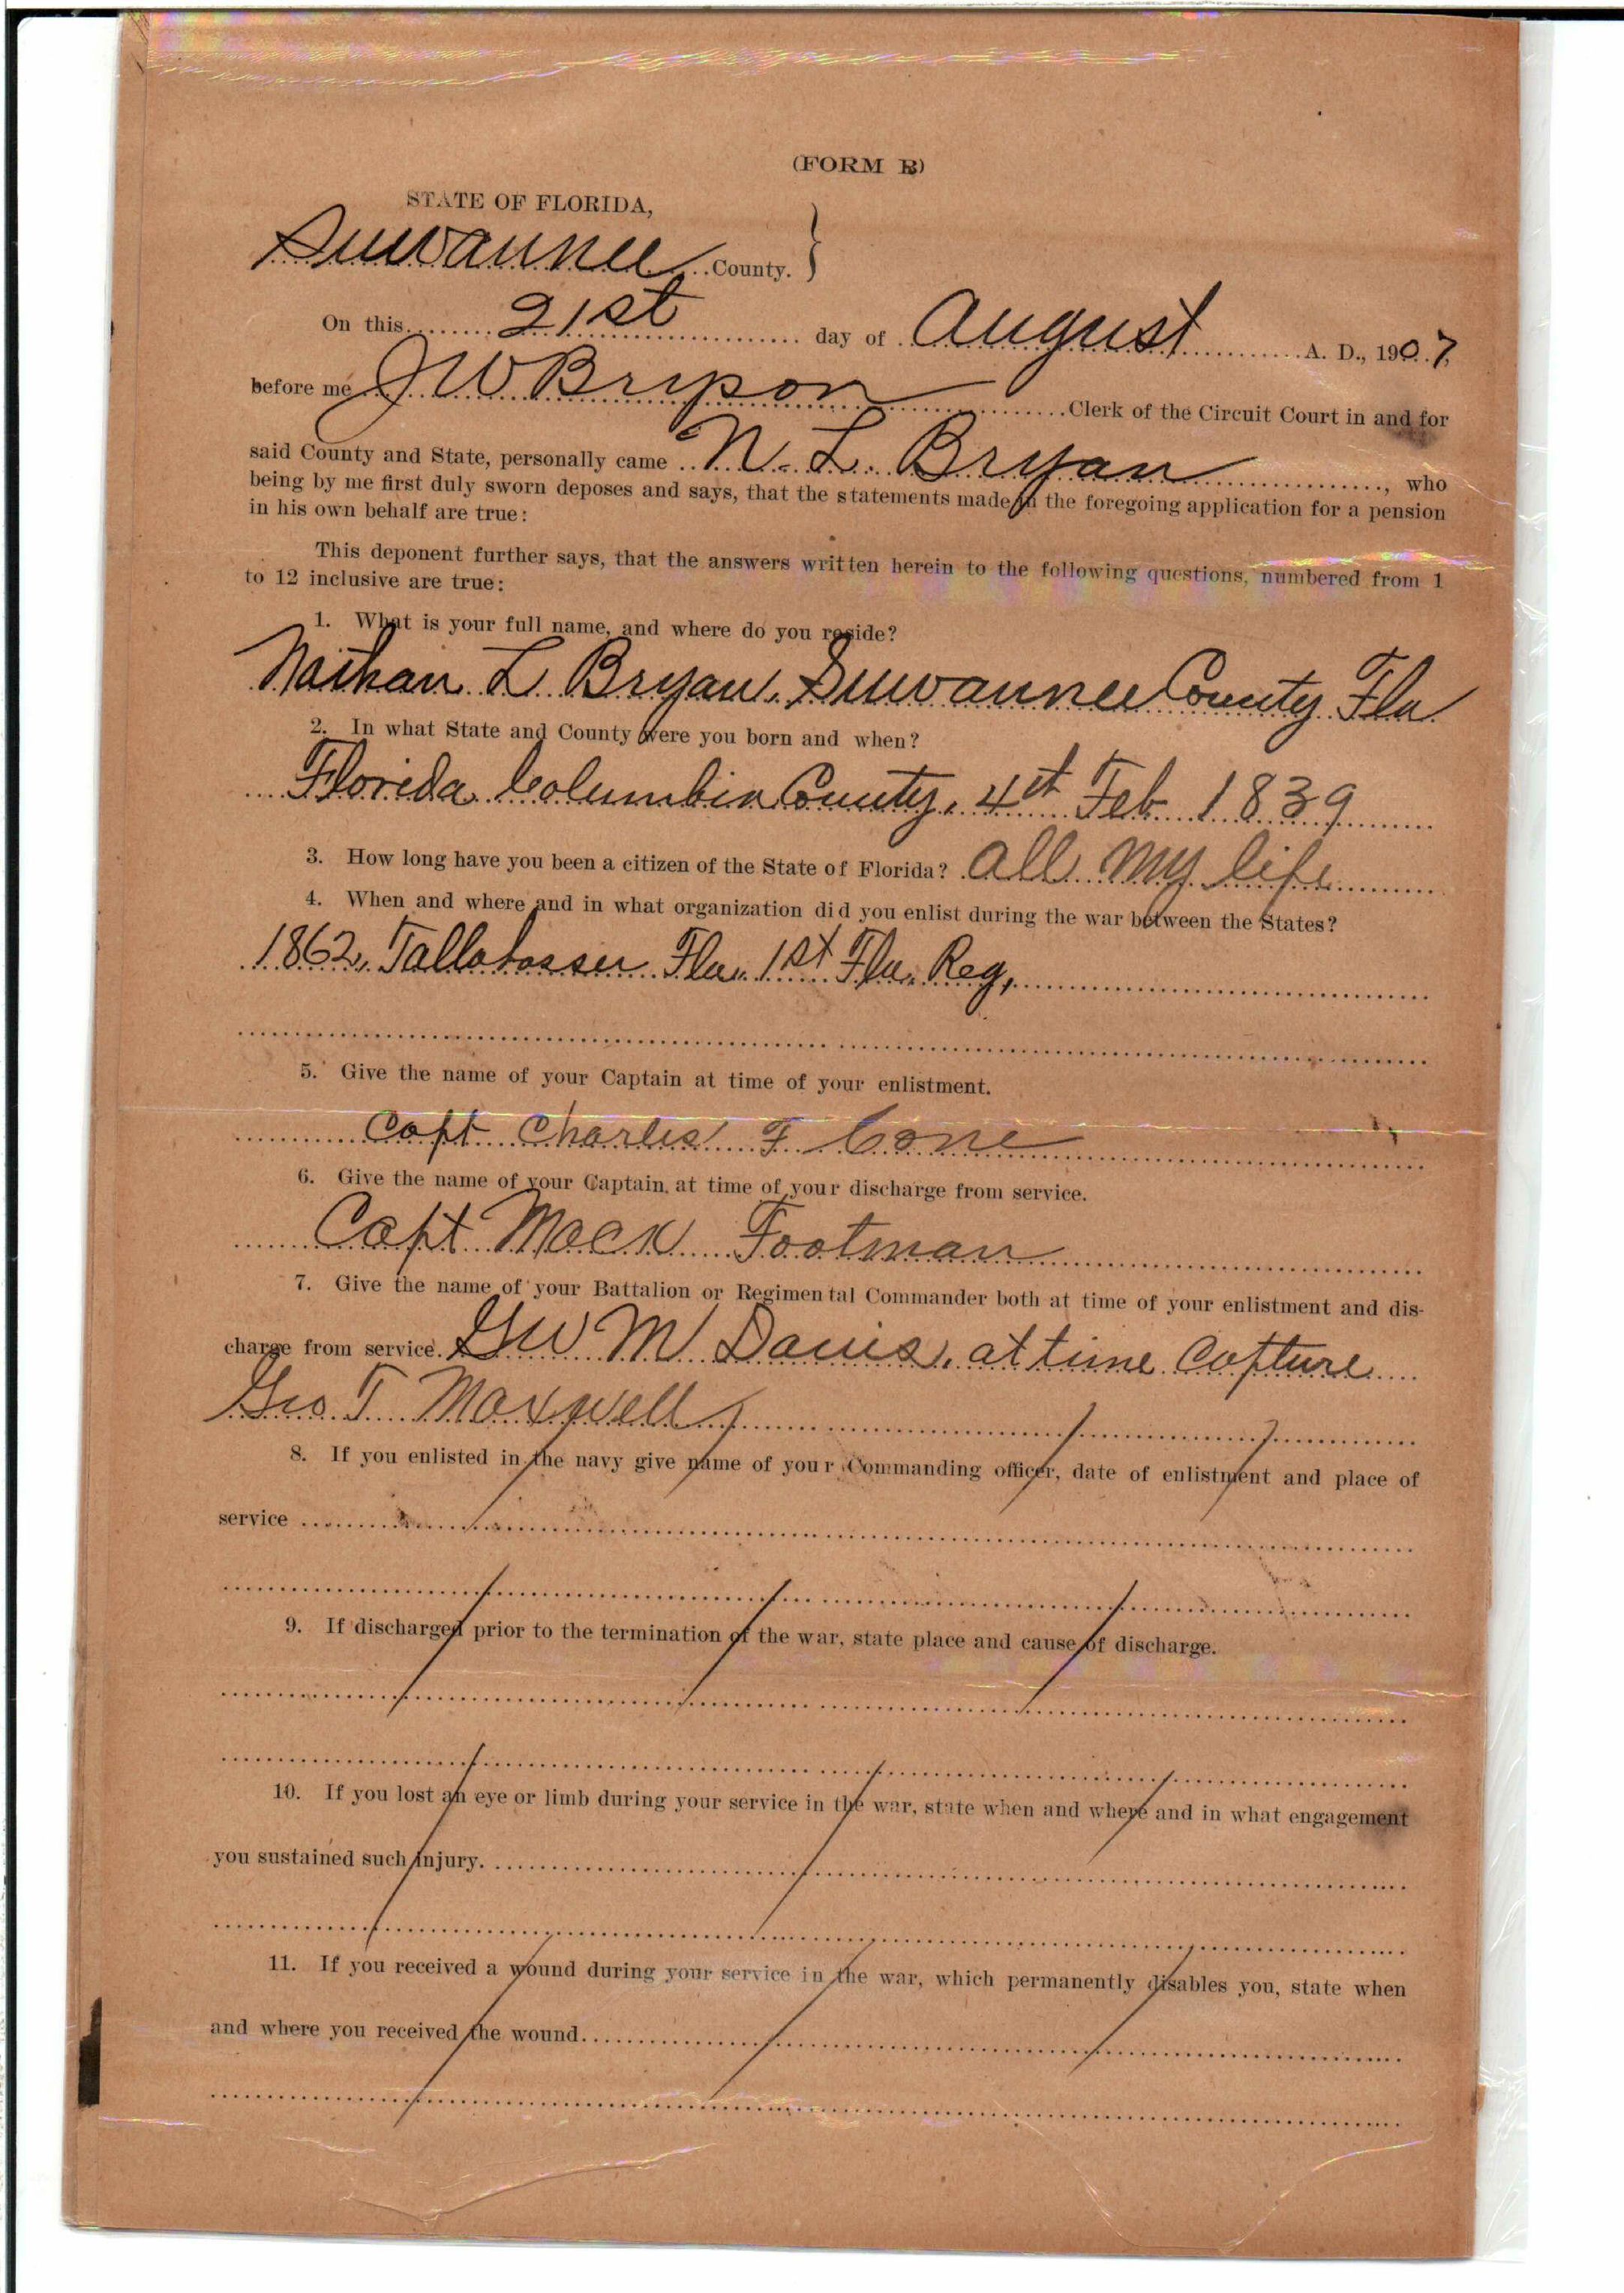 (FORM B)
STATE OF FLORIDA,
Suwannee County.
On this 21st day of August A. D., 1907,
before me J W Bryson Clerk of the Circuit Court in and for
said County and State, personally came N. L. Bryan, who
being by me first duly sworn deposes and says, that the statements made in the foregoing application for a pension
in his own behalf are true:
This deponent further says, that the answers written herein to the following questions, numbered from 1
to 12 inclusive are true:
1. What is your full name, and where do you reside?
Nathan L Bryan, Suwannee County Fla
2. In what State and County were you born and when?
Florida Columbia County, 4st Feb 1839
3. How long have you been a citizen of the State of Florida? All my life
4. When and where and in what organization did you enlist during the war between the States?
1862, Tallahassee Fla. 1st Fla. Reg,
5. Give the name of your Captain at time of your enlistment.
Capt Charles F Cone
6. Give the name of your Captain at time of your discharge from service.
Capt Mack Footman
7. Give the name of your Battalion or Regimental Commander both at time of your enlistment and dis-
charge from service. G W M Davis, at time Capture
Geo T Maxwell
8. If you enlisted in the navy give name of your Commanding officer, date of enlistment and place of
service
9. If discharged prior to the termination of the war, state place and cause of discharge.
10. If you lost an eye or limb during your service in the war, state when and where and in what engagement
you sustained such injury.
11. If you received a wound during your service in the war, which permanently disables you, state when
and where you received the wound